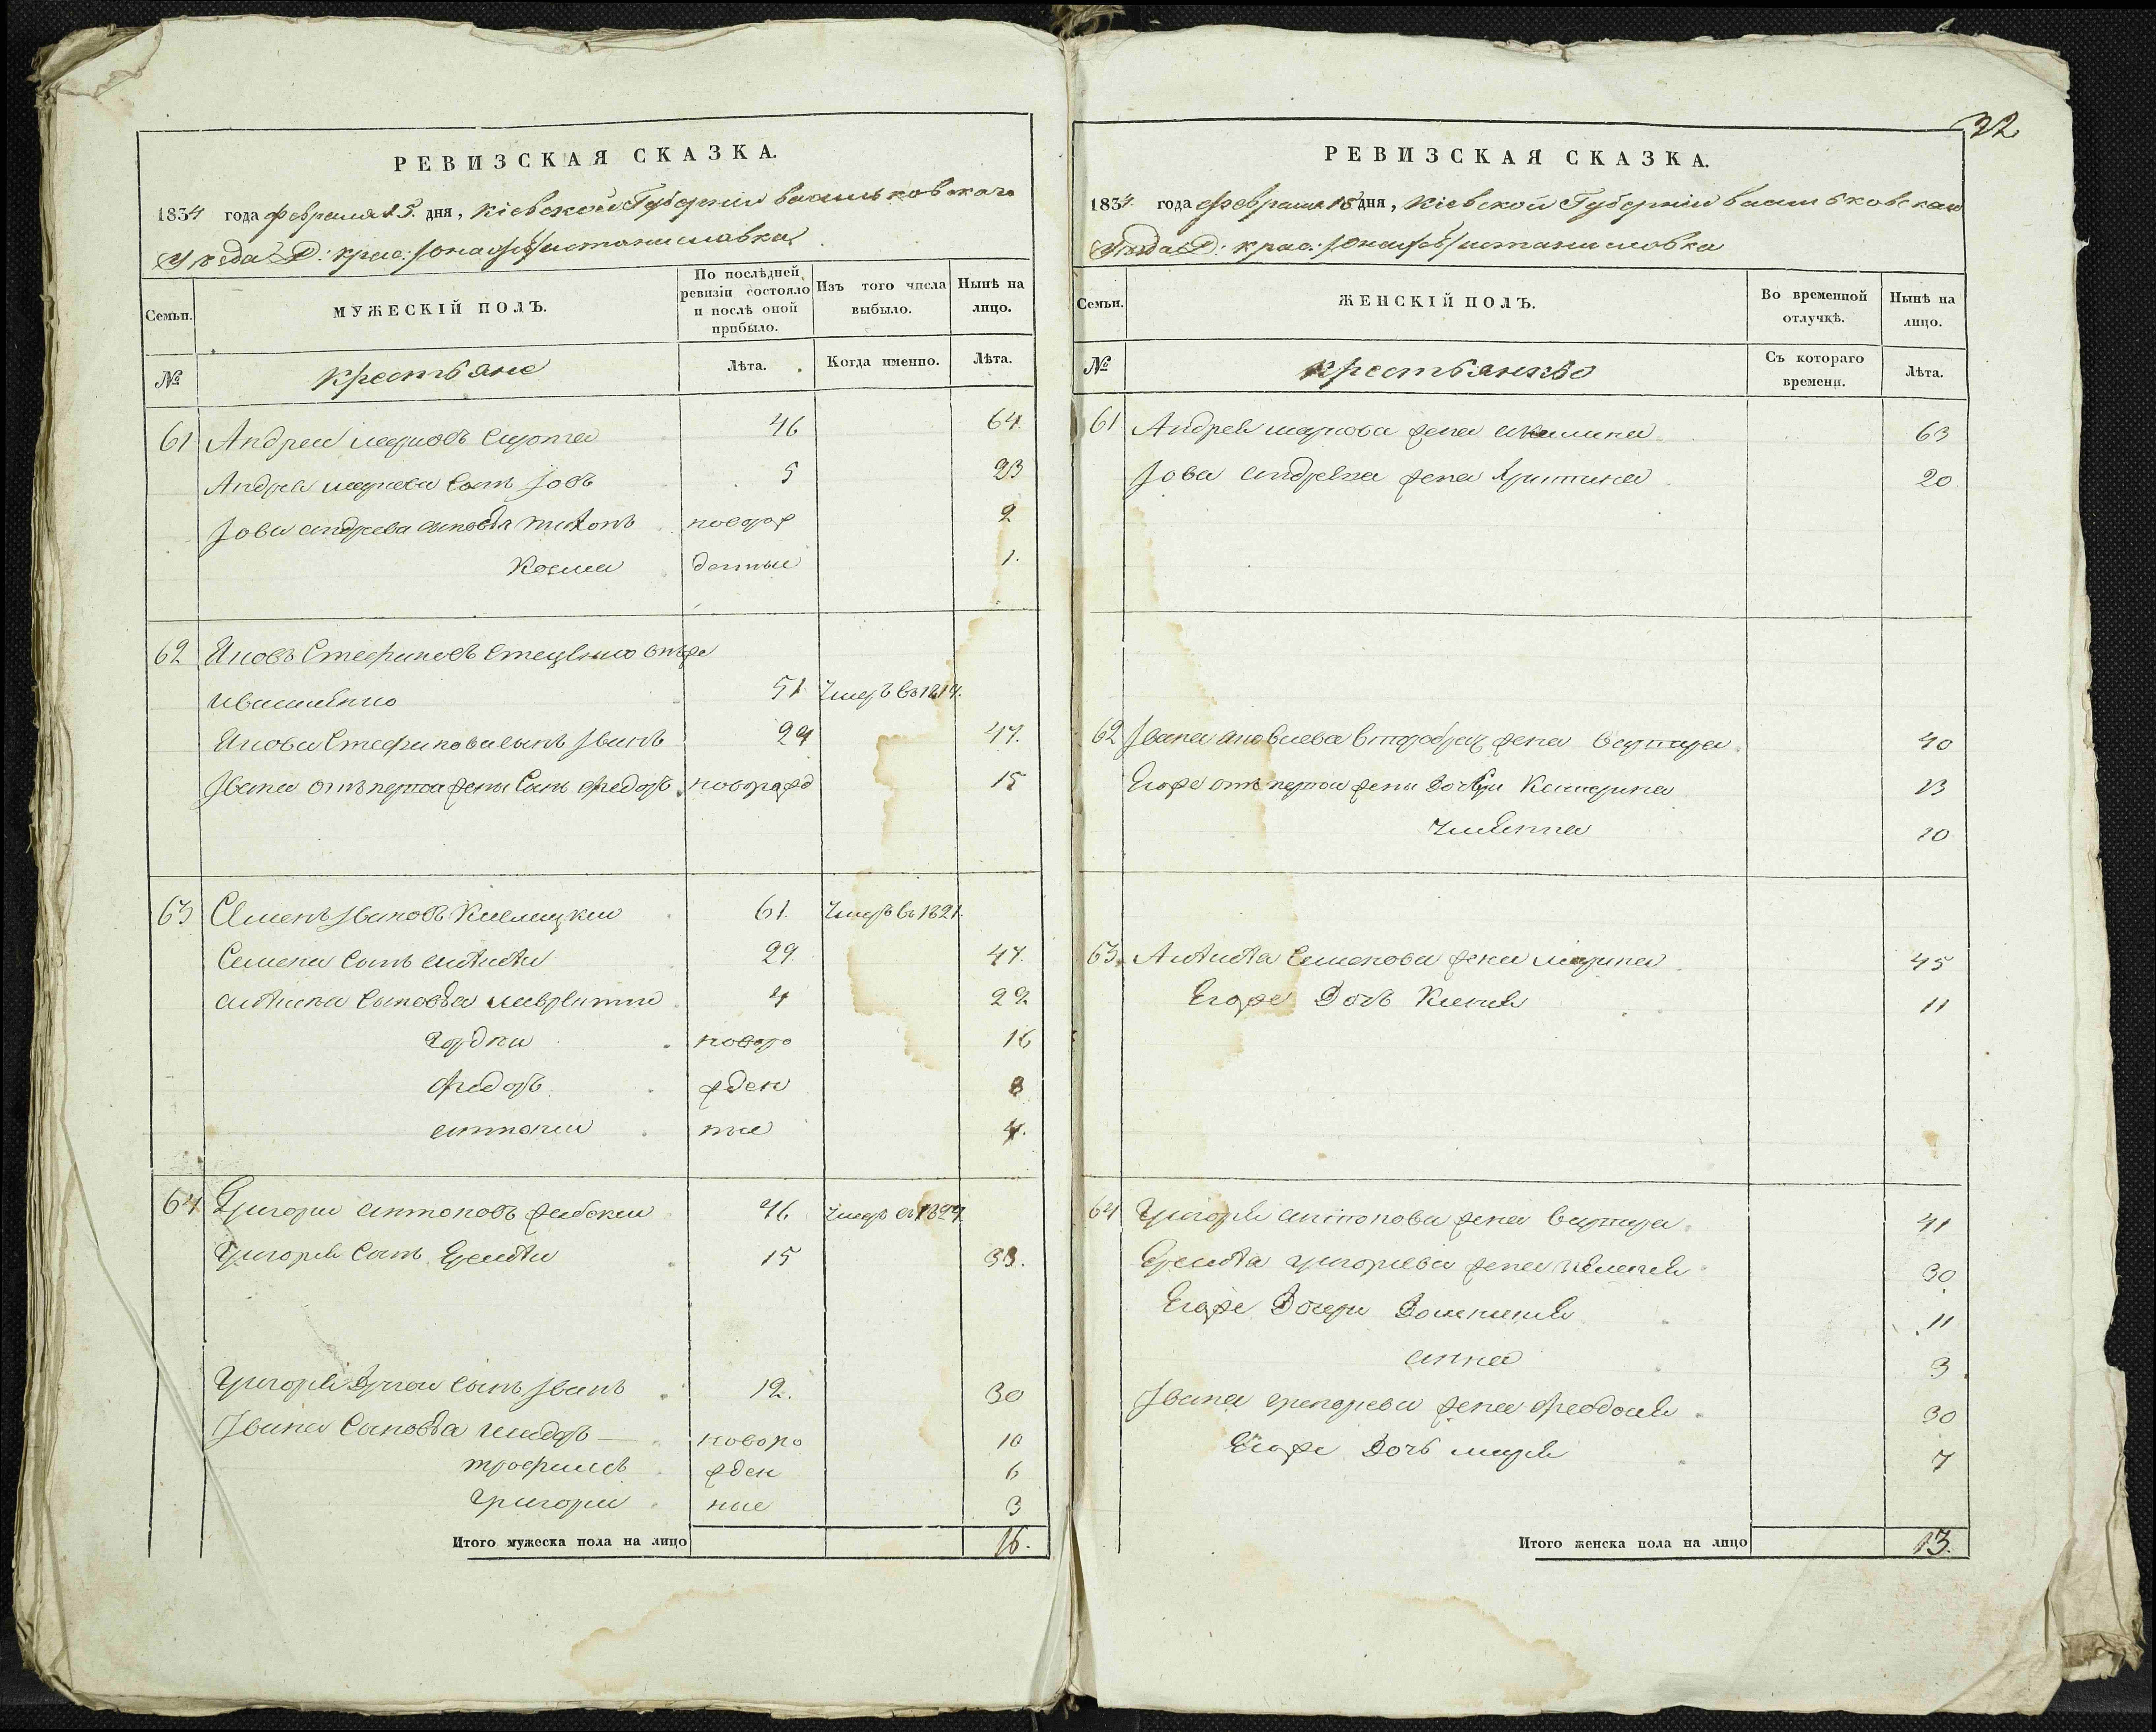 РЕВИЗСКАЯ СКАЗКА.
1834 года февраля 15. дня, Кіевской Губерніи васильковскаго
Уезда Д:
Семьи.
МУЖЕСКІЙ ПОЛЪ.
По послѣдней ревизіи состояло и послѣ оной прибыло.
Изъ того числа выбыло.
Нынѣ на лицо.
№
крестьяне
Лѣта.
Когда именно.
Лѣта.
61 Андреи марковъ сирота 46 64
Андрея маркова Сынъ Іовъ 5 23
Іова андреева сыновья тихонъ новорож 2
Косма денныи 1.
62 Яковъ Стефановъ Стеценко онъже
ивашенко 51 Умеръ въ 1817.
Якова Стефанова сынъ Іванъ 29 47.
Івана отъ первои жены Сынъ федоръ новорожд 15
63 Семенъ Івановъ 61. Умеръ въ 1821.
Семена Сынъ 29. 47.
Сыновья лаврентии 4 22
гордеи новоро 16
федоръ жден 8
антонии ные 4.
64 Григории антоновъ 46 Умеръ въ 1824.
Григорія Сынъ Еремѣи 15 33.
Григорія другои Сынъ Іванъ 12. 30
Івана Сыновья новоро 10
трофимъ жден 6
Григории ные 3
Итого мужеска пола на лицо 16.
32
РЕВИЗСКАЯ СКАЗКА.
1834 года февраля 15 дня, Кіевской Губерніи васильковскаго
Уезда Д:
Семьи.
ЖЕНСКІЙ ПОЛЪ.
Во временной отлучкѣ.
Нынѣ на лицо.
№
крестьянкѣ
Съ котораго времени.
Лѣта.
61 Андрея маркова жена акилина 63
Іова андреева жена христина 20
62 Івана яковлева жена варвара 40
Егоже отъ первои жены дочери Катерина 13
Ульянна 10
63 Семенова жена марина 45
Егоже Дочь Ксения 11
64 Григория антонова жена варвара 41
Еремѣя григориева жена пелагея 30
Егоже Дочери Домникия 11
анна 3
Івана григорева жена феодосия 30
Егоже Дочь мария 7
Итого женска пола на лицо 13.